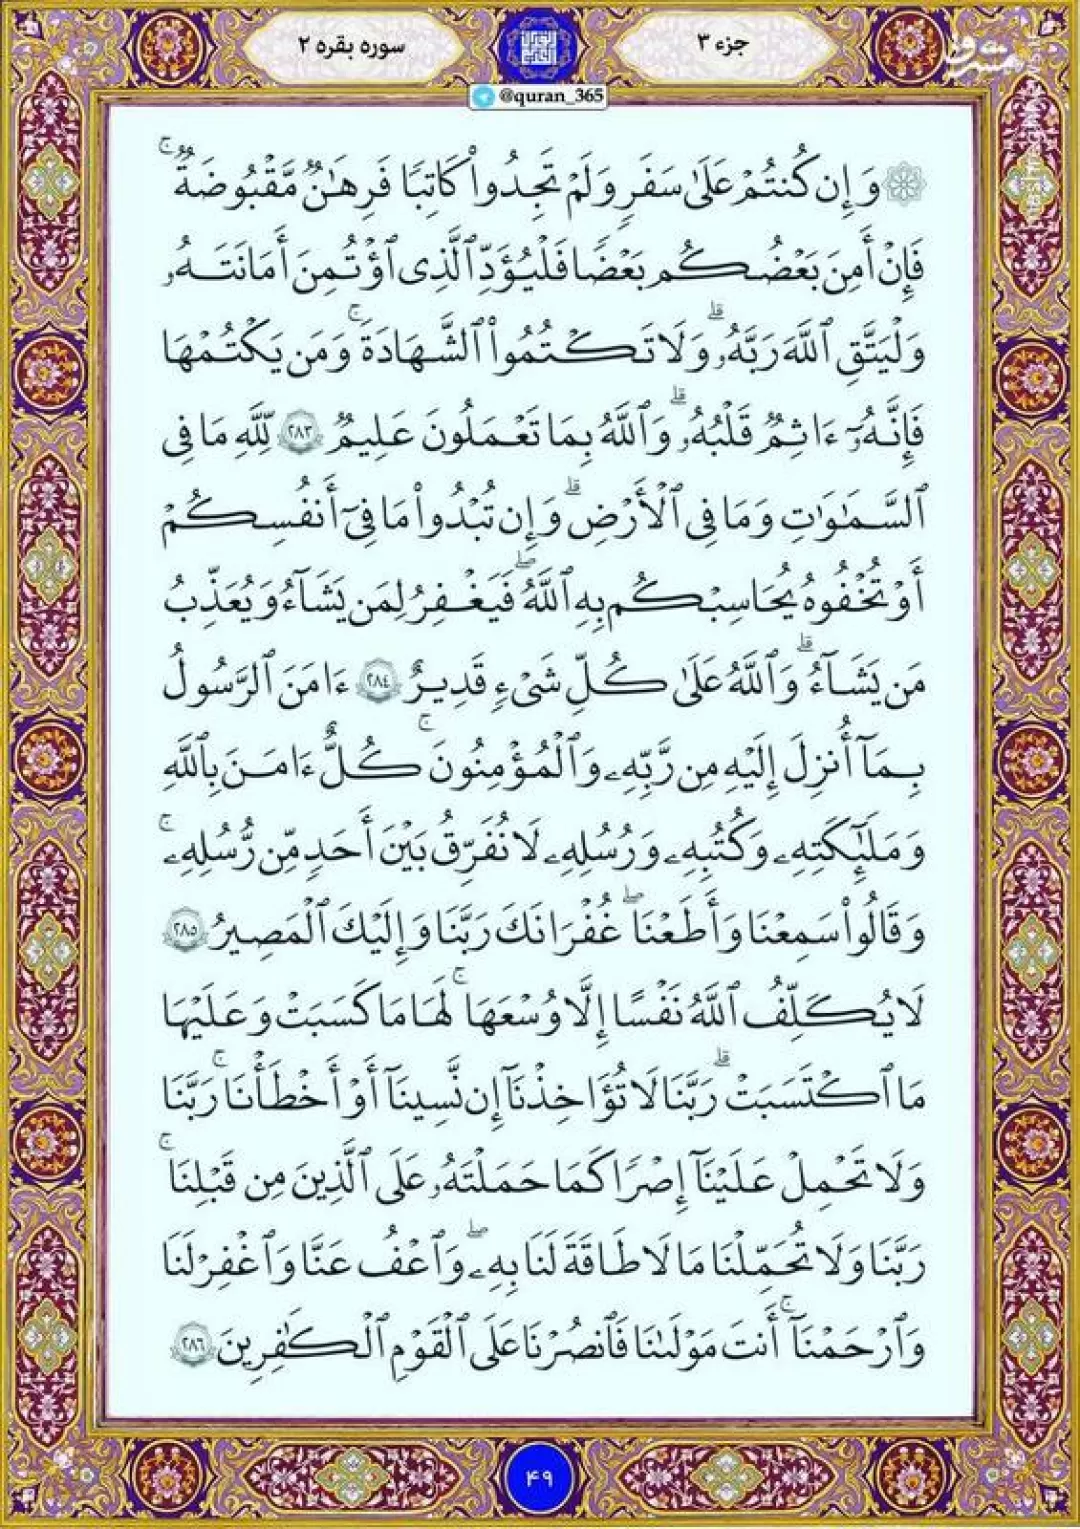 جزء ۳
سوره بقره ۲
@quran_365
مشرق
۞ وَإِن كُنتُمْ عَلَىٰ سَفَرٍ وَلَمْ تَجِدُوا۟ كَاتِبًا فَرِهَٰنٌ مَّقْبُوضَةٌ ۖ
فَإِنْ أَمِنَ بَعْضُكُم بَعْضًا فَلْيُؤَدِّ ٱلَّذِى ٱؤْتُمِنَ أَمَانَتَهُۥ
وَلْيَتَّقِ ٱللَّهَ رَبَّهُۥ ۗ وَلَا تَكْتُمُوا۟ ٱلشَّهَادَةَ ۚ وَمَن يَكْتُمْهَا
فَإِنَّهُۥٓ ءَاثِمٌ قَلْبُهُۥ ۗ وَٱللَّهُ بِمَا تَعْمَلُونَ عَلِيمٌ ٢٨٣ لِّلَّهِ مَا فِى
ٱلسَّمَٰوَٰتِ وَمَا فِى ٱلْأَرْضِ ۗ وَإِن تُبْدُوا۟ مَا فِىٓ أَنفُسِكُمْ
أَوْ تُخْفُوهُ يُحَاسِبْكُم بِهِ ٱللَّهُ ۖ فَيَغْفِرُ لِمَن يَشَآءُ وَيُعَذِّبُ
مَن يَشَآءُ ۗ وَٱللَّهُ عَلَىٰ كُلِّ شَىْءٍ قَدِيرٌ ٢٨٤ ءَامَنَ ٱلرَّسُولُ
بِمَآ أُنزِلَ إِلَيْهِ مِن رَّبِّهِۦ وَٱلْمُؤْمِنُونَ ۚ كُلٌّ ءَامَنَ بِٱللَّهِ
وَمَلَٰٓئِكَتِهِۦ وَكُتُبِهِۦ وَرُسُلِهِۦ لَا نُفَرِّقُ بَيْنَ أَحَدٍ مِّن رُّسُلِهِۦ ۚ
وَقَالُوا۟ سَمِعْنَا وَأَطَعْنَا ۖ غُفْرَانَكَ رَبَّنَا وَإِلَيْكَ ٱلْمَصِيرُ ٢٨٥
لَا يُكَلِّفُ ٱللَّهُ نَفْسًا إِلَّا وُسْعَهَا ۚ لَهَا مَا كَسَبَتْ وَعَلَيْهَا
مَا ٱكْتَسَبَتْ ۗ رَبَّنَا لَا تُؤَاخِذْنَآ إِن نَّسِينَآ أَوْ أَخْطَأْنَا ۚ رَبَّنَا
وَلَا تَحْمِلْ عَلَيْنَآ إِصْرًا كَمَا حَمَلْتَهُۥ عَلَى ٱلَّذِينَ مِن قَبْلِنَا ۚ
رَبَّنَا وَلَا تُحَمِّلْنَا مَا لَا طَاقَةَ لَنَا بِهِۦ ۖ وَٱعْفُ عَنَّا وَٱغْفِرْ لَنَا
وَٱرْحَمْنَآ ۚ أَنتَ مَوْلَىٰنَا فَٱنصُرْنَا عَلَى ٱلْقَوْمِ ٱلْكَٰفِرِينَ ٢٨٦
۴۹